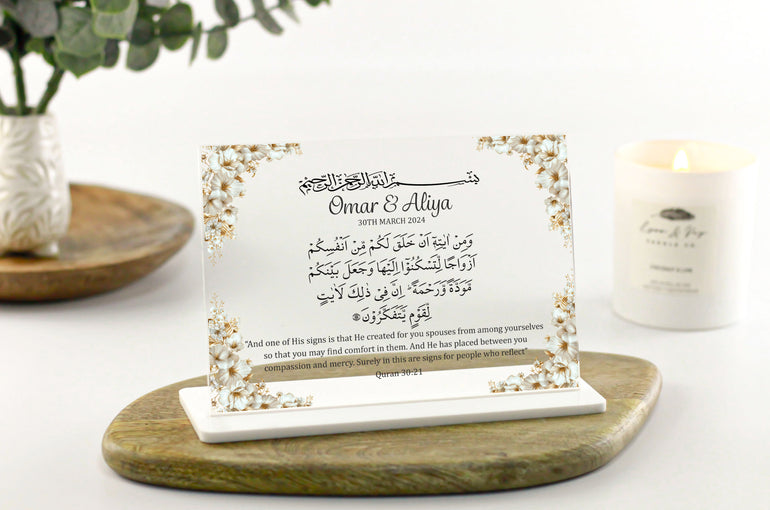 بِسْمِ اللهِ الرَّحْمٰنِ الرَّحِيْمِ
Omar & Aliya
30TH MARCH 2024
وَمِنْ اٰيٰتِهٖٓ اَنْ خَلَقَ لَكُمْ مِّنْ اَنْفُسِكُمْ
اَزْوَاجًا لِّتَسْكُنُوْٓا اِلَيْهَا وَجَعَلَ بَيْنَكُمْ
مَّوَدَّةً وَّرَحْمَةً ؕ اِنَّ فِيْ ذٰلِكَ لَاٰيٰتٍ
لِّقَوْمٍ يَّتَفَكَّرُوْنَ
“And one of His signs is that He created for you spouses from among yourselves
so that you may find comfort in them. And He has placed between you
compassion and mercy. Surely in this are signs for people who reflect”
Quran 30:21
CANDLE CO.